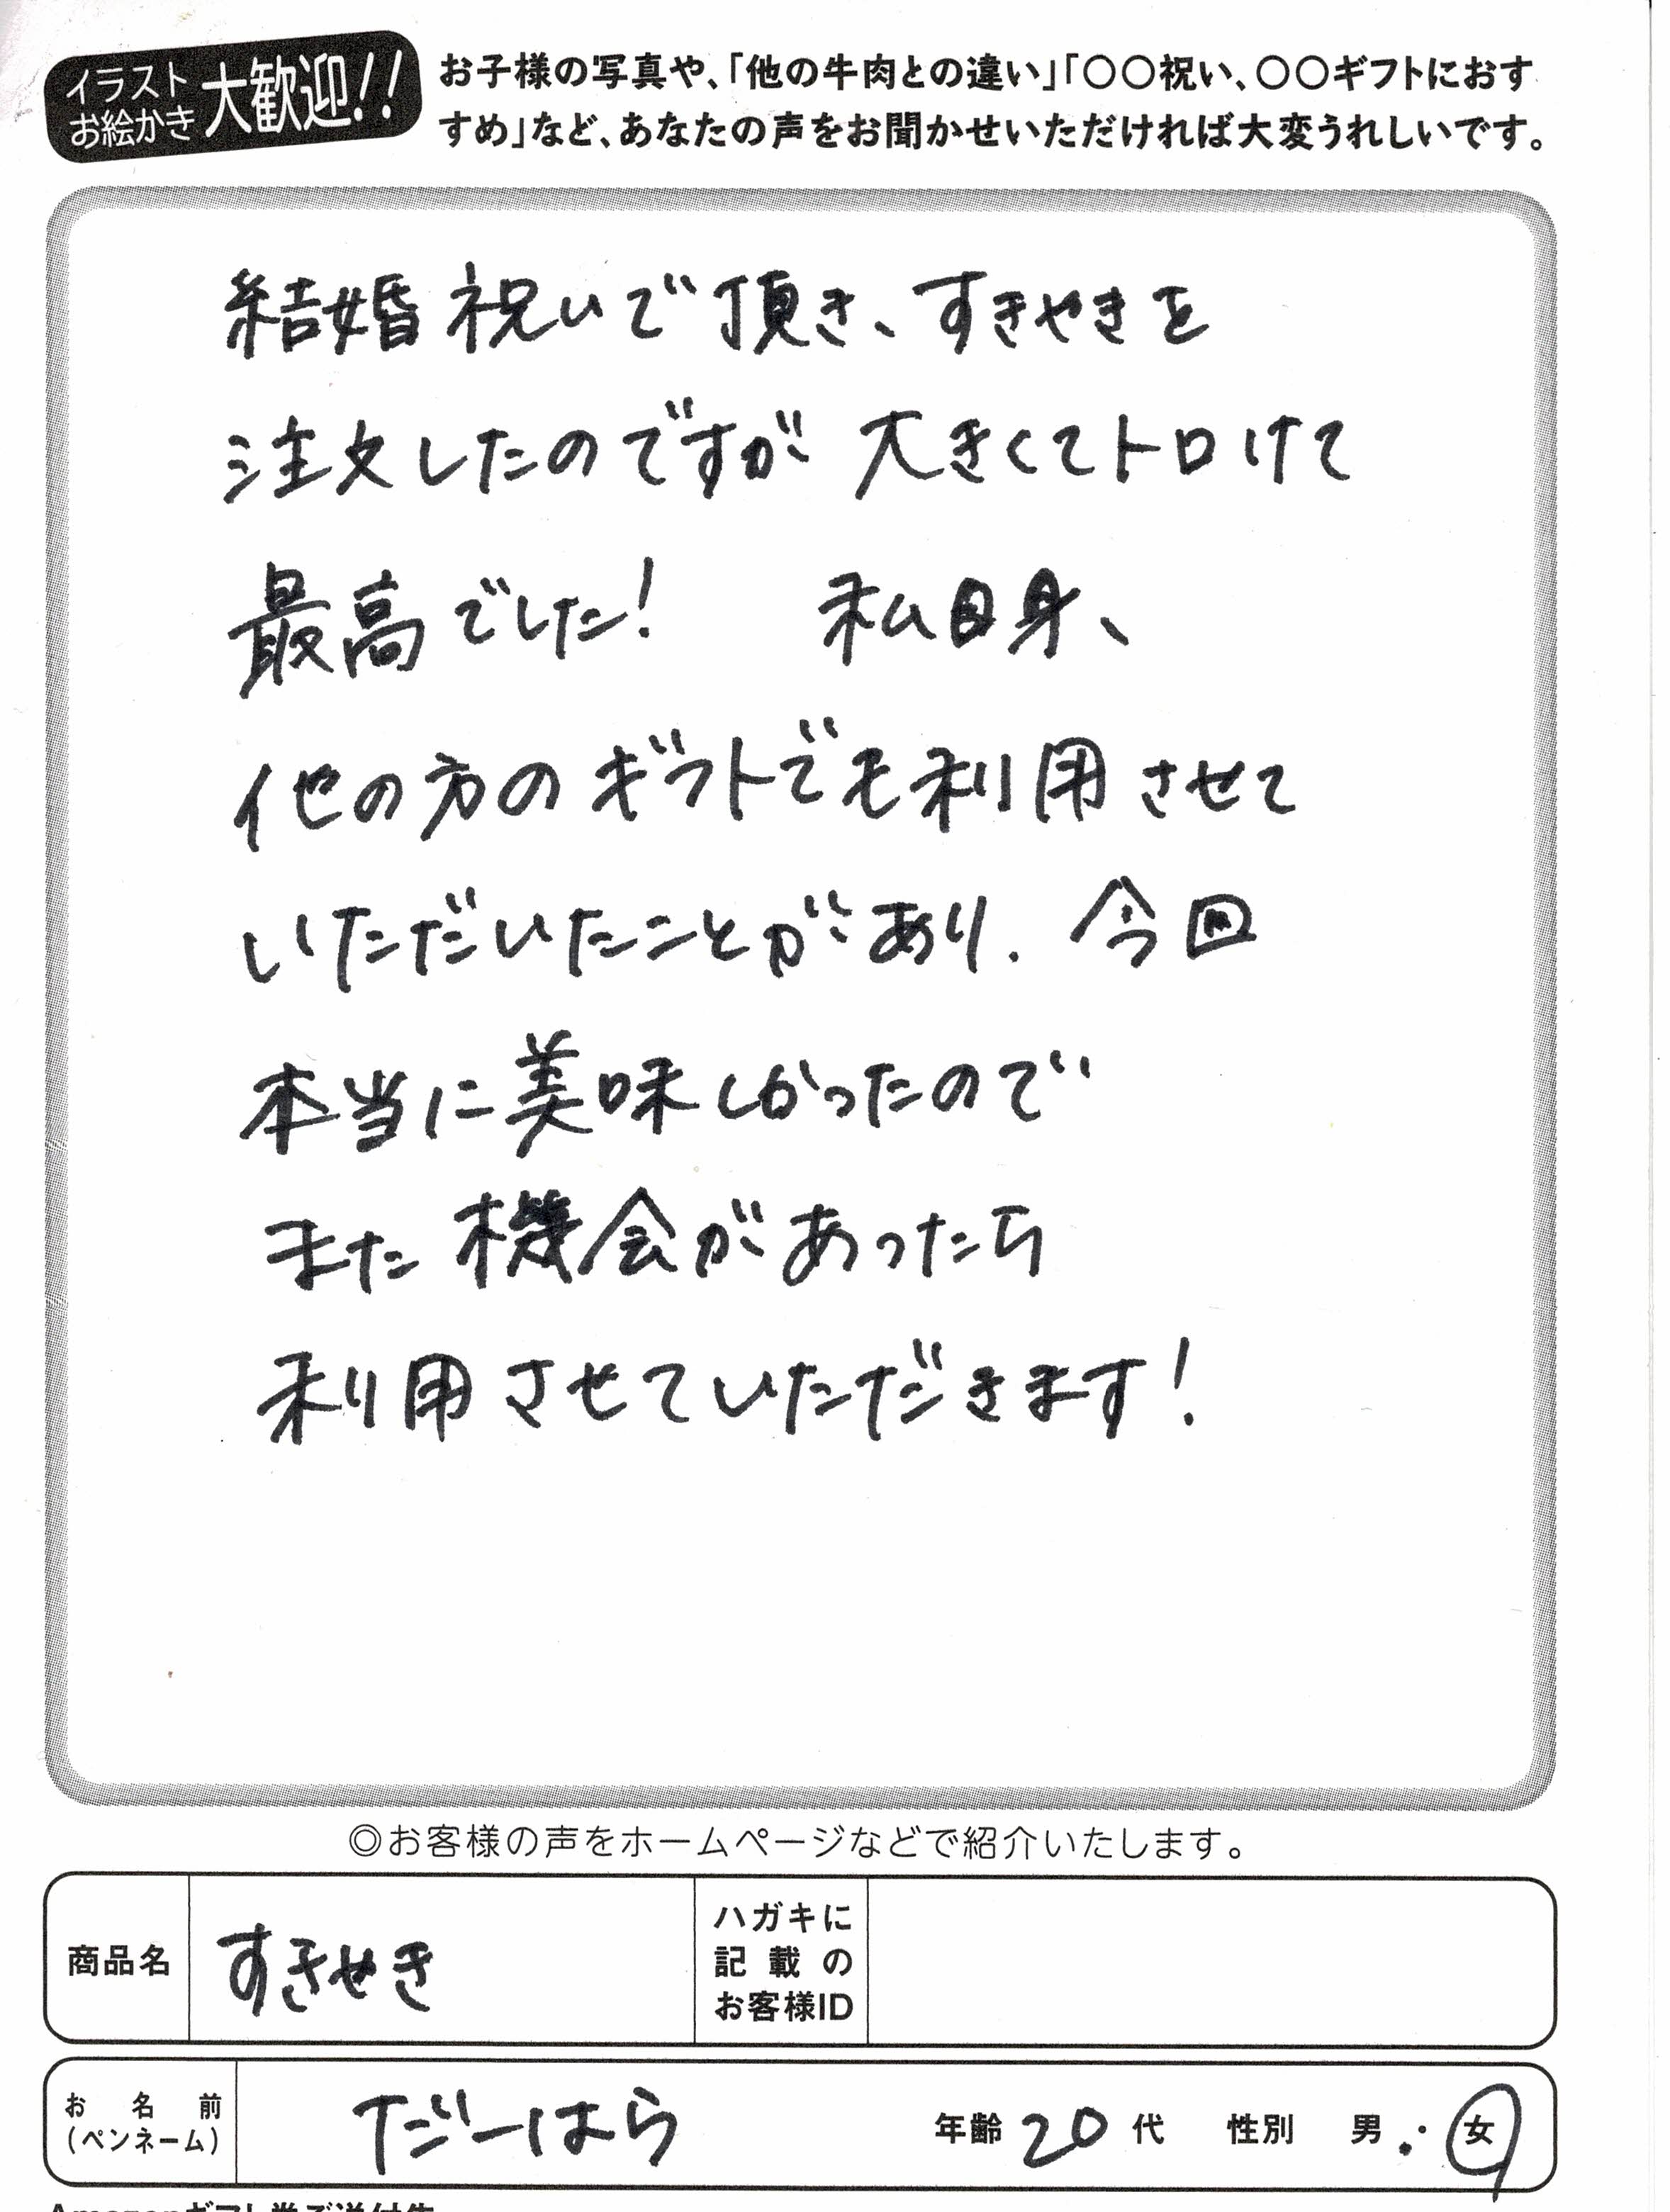 イラスト
お絵かき
大歓迎!!
お子様の写真や、「他の牛肉との違い」「〇〇祝い、〇〇ギフトにおす
すめ」など、あなたの声をお聞かせいただければ大変うれしいです。
結婚祝いで頂き、すきやきを
注文したのですが 大きくてトロけて
最高でした! 私自身、
他の方のギフトでも利用させて
いただいたことがあり、今回
本当に美味しかったので
また機会があったら
利用させていただきます!
◎お客様の声をホームページなどで紹介いたします。
商品名 すきやき
ハガキに
記載の
お客様ID
お名前
(ペンネーム)
だーはら
年齢 20 代 性別 男・女